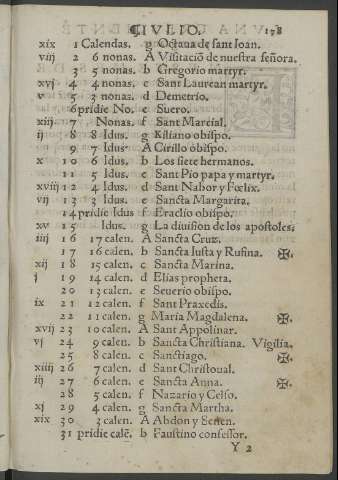 ¶ IVLIO. 178
xix 1 Calendas. g Octaua de sant Ioan.
viij 2 6 nonas. A Visitaciō de nuestra señora.
3 5 nonas. b Gregorio martyr.
xvj 4 4 nonas. c Sant Laurean martyr.
v 5 3 nonas. d Demetrio.
6 pridie No. e Suero.
xiij 7 Nonas. f Sant Marcial.
ij 8 8 Idus. g Kiliano obispo.
9 7 Idus. A Cirillo obispo.
x 10 6 Idus. b Los siete hermanos.
11 5 Idus. c Sant Pio papa y martyr.
xviij 12 4 Idus. d Sant Nabor y Fœlix.
vij 13 3 Idus. e Sancta Margarita.
14 pridie Idus f Eraclio obispo.
xv 15 Idus. g La diuision de los apostoles.
iiij 16 17 calen. A Sancta Cruz.
17 16 calen. b Sancta Iusta y Rufina. ✠.
xij 18 15 calen. c Sancta Marina.
j 19 14 calen. d Elias propheta.
20 13 calen. e Seuerio obispo.
ix 21 12 calen. f Sant Praxedis.
22 11 calen. g Maria Magdalena. ✠.
xvij 23 10 calen. A Sant Appolinar.
vj 24 9 calen. b Sancta Christiana. Vigilia.
25 8 calen. c Sanctiago. ✠.
xiiij 26 7 calen. d Sant Christoual.
iij 27 6 calen. e Sancta Anna. ✠.
28 5 calen. f Nazario y Celso.
xj 29 4 calen. g Sancta Martha.
xix 30 3 calen. A Abdon y Senen.
31 pridie calē. b Faustino confessor.
Y 2